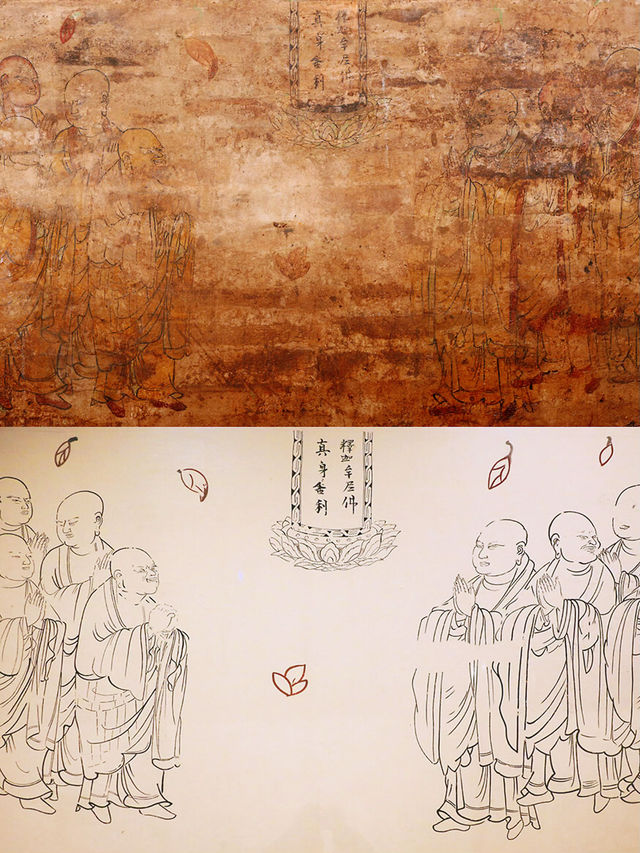 釋迦牟尼佛
真身舍利
釋迦牟尼佛
真身舍利